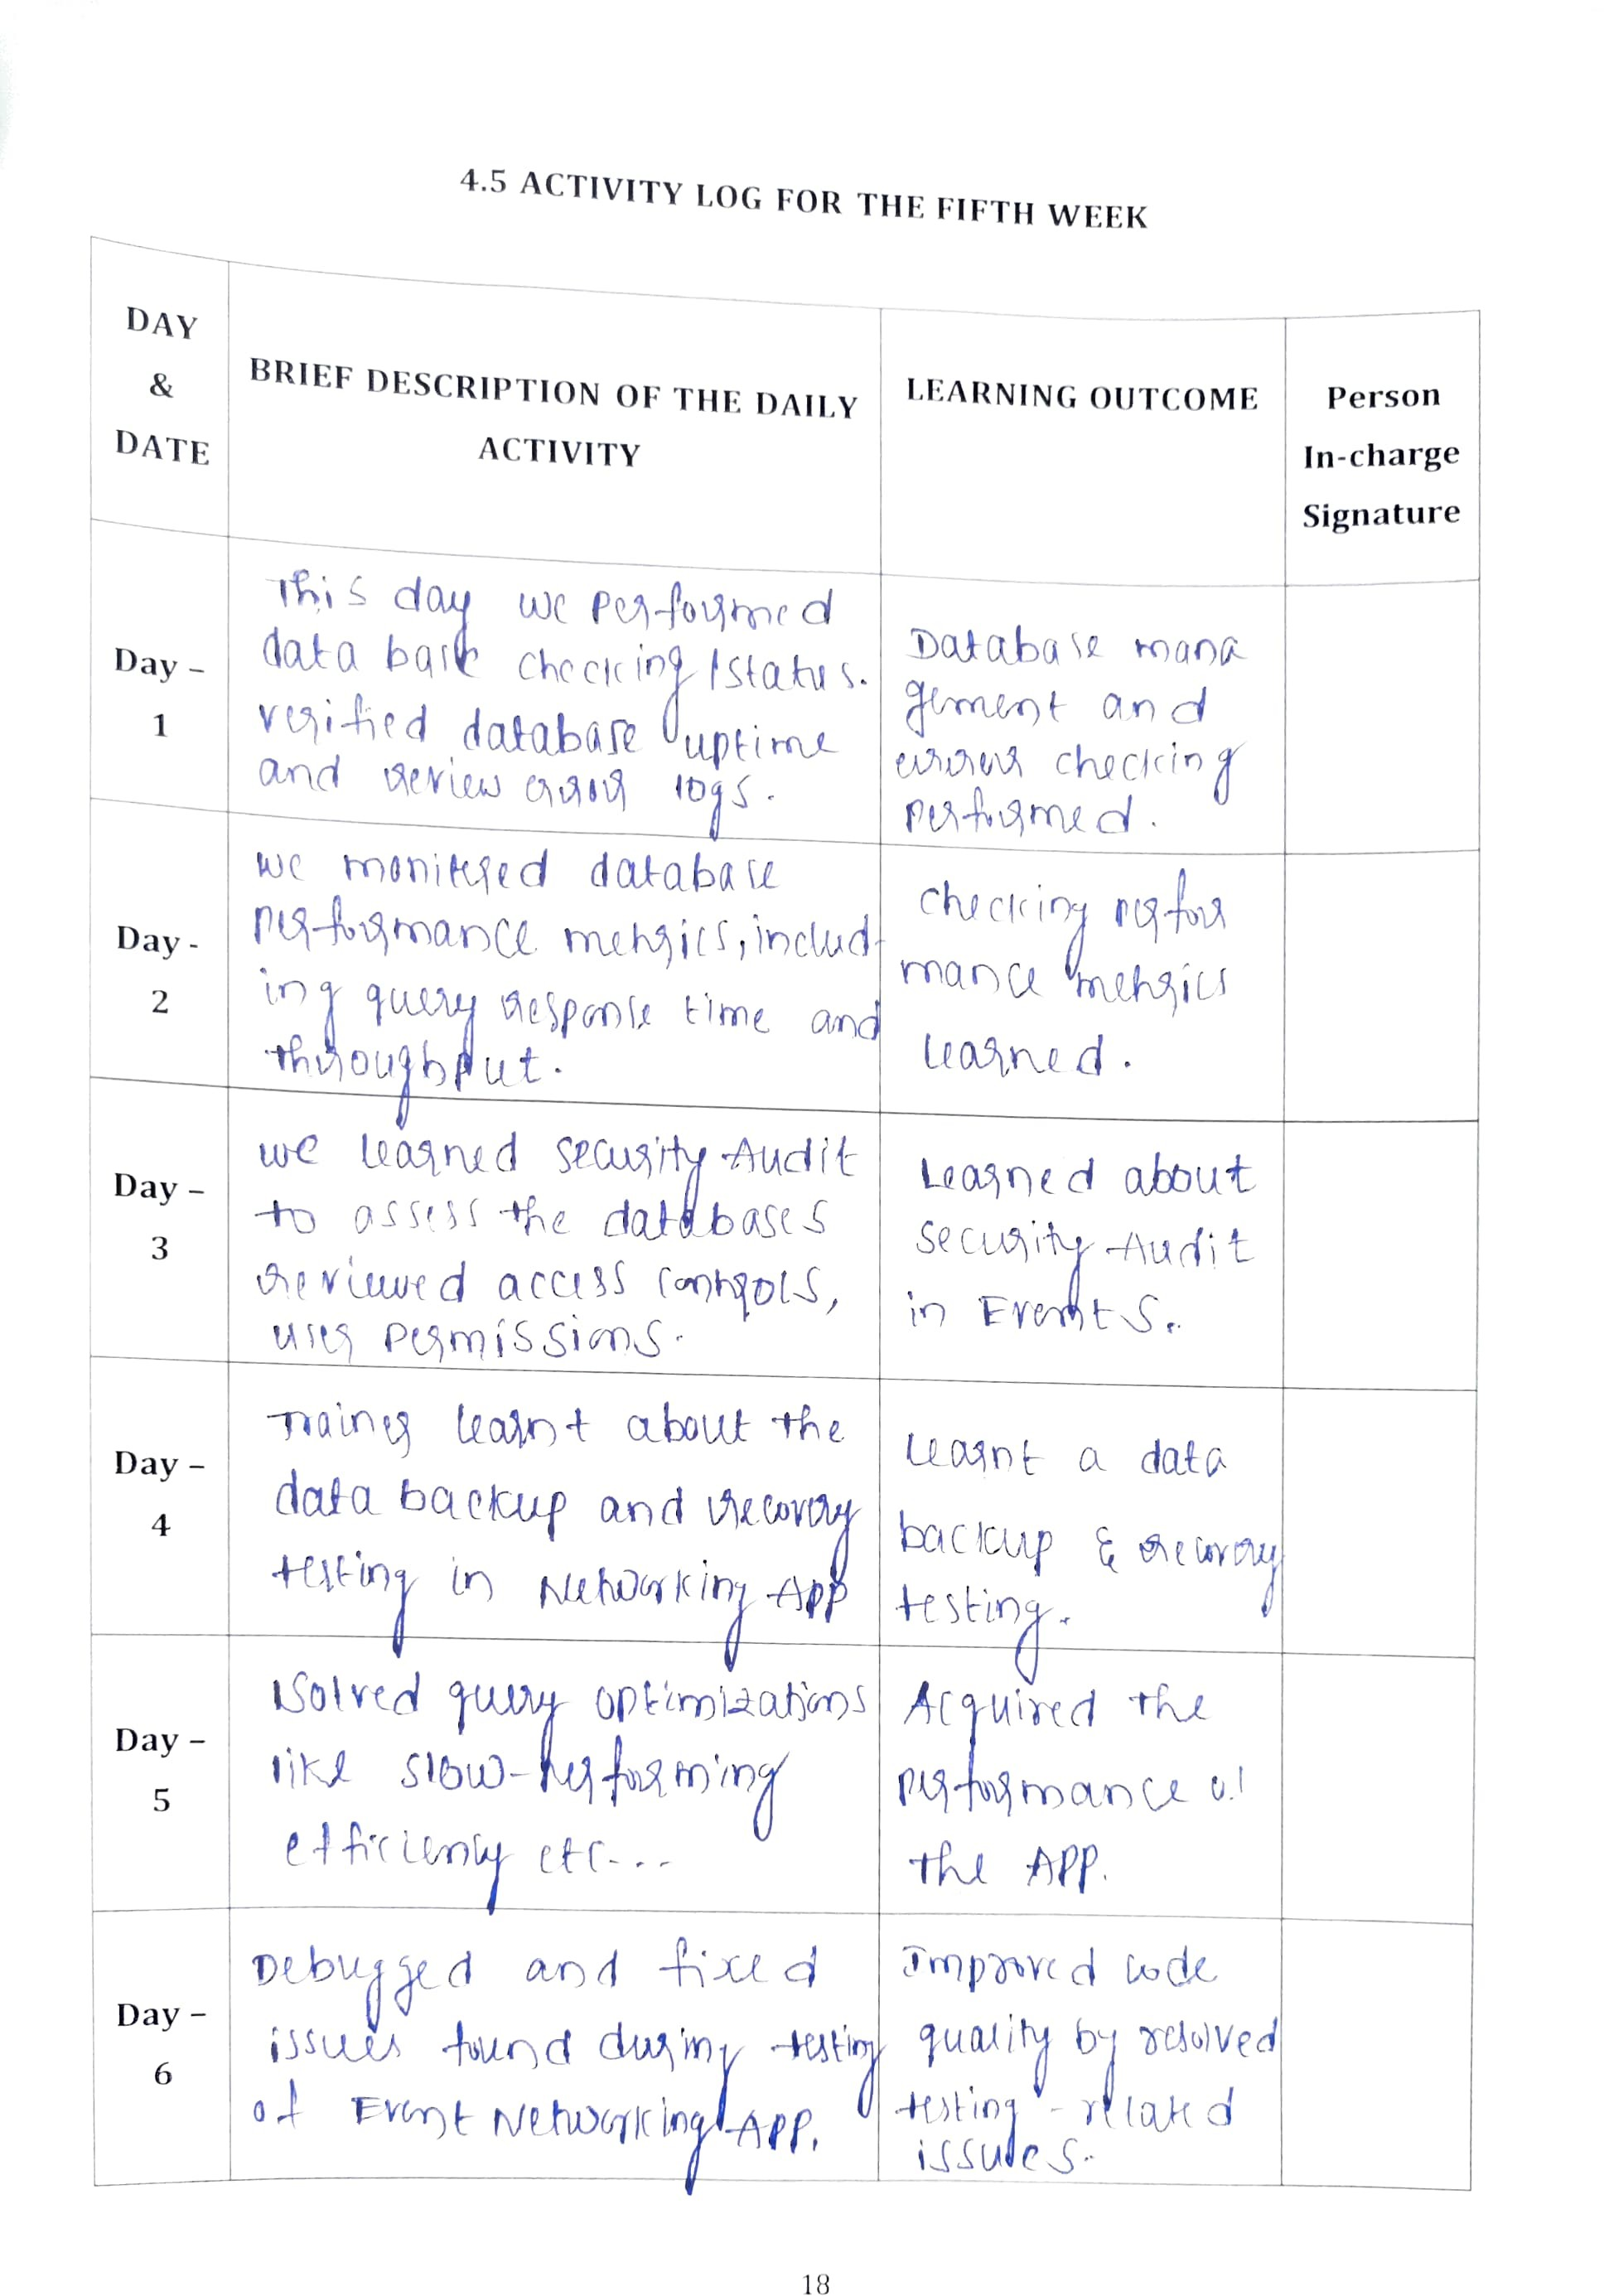 4.5 ACTIVITY LOG FOR THE FIFTH WEEK
DAY
&
DATE
BRIEF DESCRIPTION OF THE DAILY
ACTIVITY
LEARNING OUTCOME
Person
In-charge
Signature
Day –
1
This day we performed
data base checking / status.
verified database uptime
and review error logs.
Database mana
gement and
errors checking
performed.
Day -
2
we monitered database
performance metrics, includ-
ing query response time and
throughput.
checking perfor
mance metrics
learned.
Day –
3
we learned security Audit
to assess the databases
reviewed access controls,
user permissions.
Learned about
security Audit
in Events.
Day –
4
Trainer learnt about the
data backup and recovery
testing in Networking App
learnt a data
backup & recovery
testing.
Day –
5
Solved query optimizations
like slow-performing
efficiency etc...
Acquired the
performance of
the APP.
Day –
6
Debugged and fixed
issues found during testing
of Event Networking APP.
Improved code
quality by resolved
testing - related
issues.
18